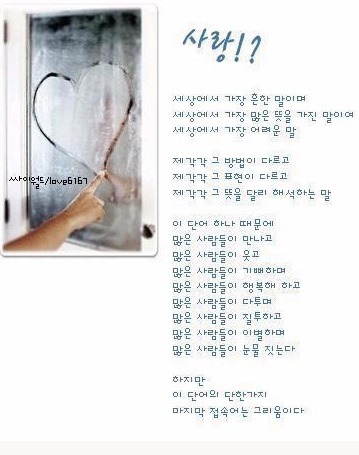 사랑!?
세상에서 가장 흔한 말이며
세상에서 가장 많은 뜻을 가진 말이며
세상에서 가장 어려운 말
제각각 그 방법이 다르고
제각각 그 표현이 다르고
제각각 그 뜻을 달리 해석하는 말
싸이월드/love6167
이 단어 하나 때문에
많은 사람들이 만나고
많은 사람들이 웃고
많은 사람들이 기뻐하며
많은 사람들이 행복해 하고
많은 사람들이 다투며
많은 사람들이 질투하고
많은 사람들이 이별하며
많은 사람들이 눈물 짓는다
하지만
이 단어의 단한가지
마지막 접속어는 그리움이다